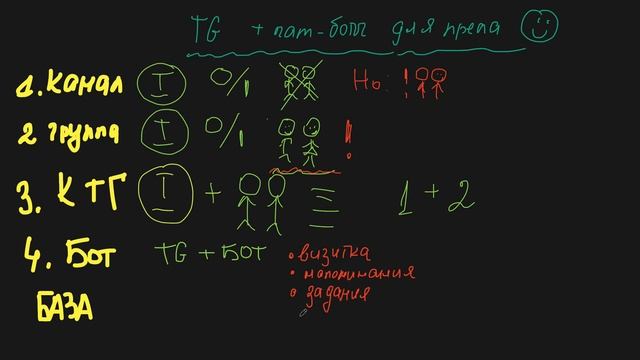 TG + чат-бот для препа
1. Канал I 0/1 Но: !
2 Группа I 0/1 !
3. К ТГ I + ≡ 1 + 2
4. Бот TG + БОТ • визитка
• напоминания
• задания
БАЗА